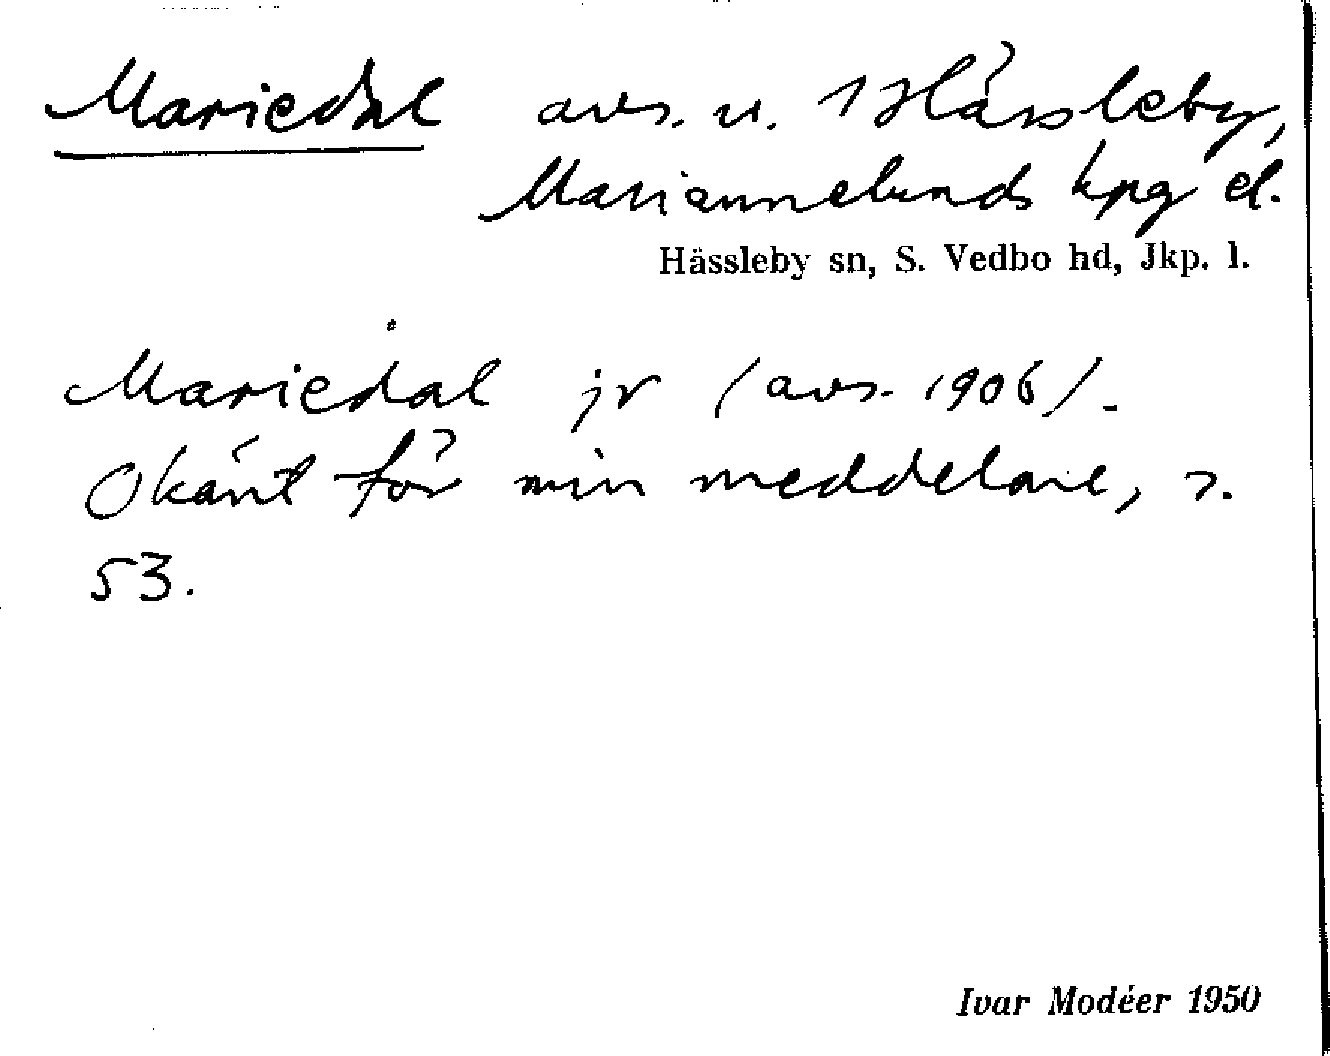 Mariedal avs. u. 1 Hässleby,
Mariannelunds kpg el.
Hässleby sn, S. Vedbo hd, Jkp. l.
Mariedal jr (avs. 1906).
Okänt för min meddelare, s.
53.
Ivar Modéer 1950